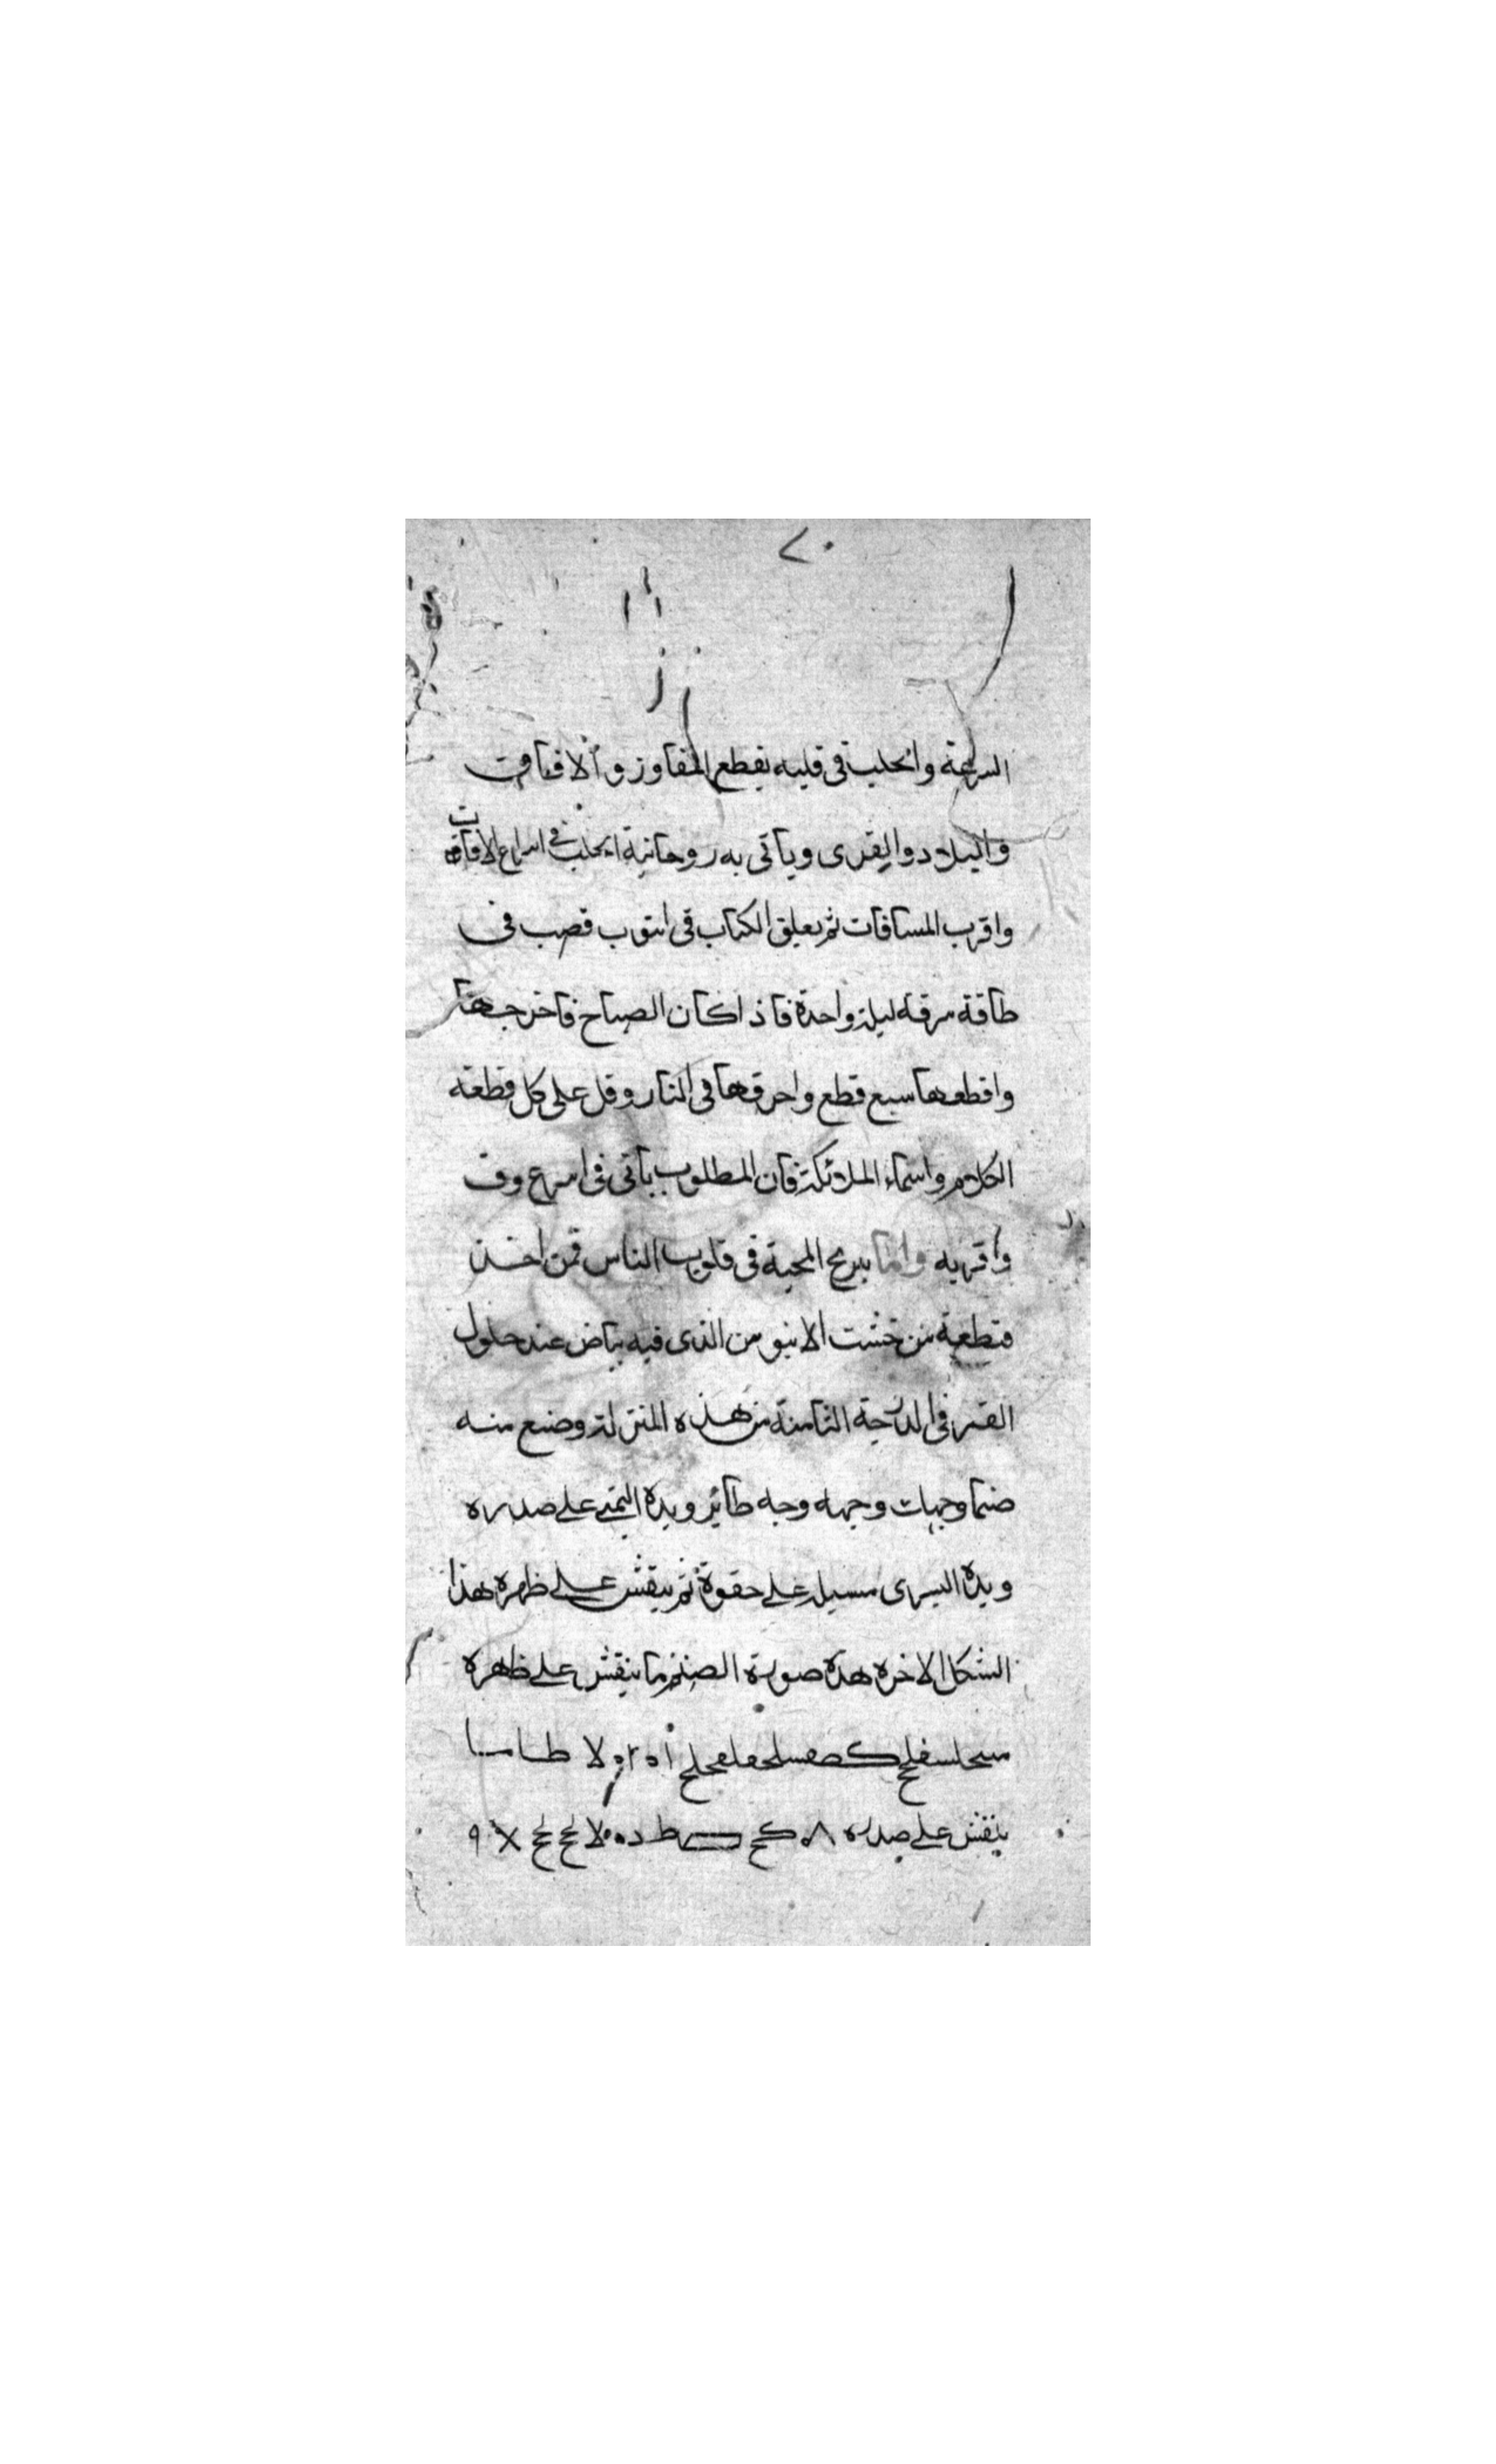 ٧٠
السرعة والجلب فى قلبه يقطع المفاوز والافاق
والبلاد والقرى وياتى به روحانية الجلب فى اسرع الاوقات
واقرب المسافات ثم يعلق الكتاب فى انبوب قصب فى
طاقة مرقه ليلة واحدة فاذا كان الصباح فاخرجها
واقطعها سبع قطع واحرقها فى النار وقل على كل قطعة
الكلام واسماء الملائكة فان المطلوب ياتى فى اسرع وقت
واقربه واما بيرح المحبة فى قلوب الناس فمن اخذ
قطعة من خشب الابنوس الذى فيه بياض عند حلول
القمر فى الدرجة الثامنة من هذه المنزلة وصنع منه
صنما وجهه وجه طائر ويده اليمنى على صدره
ويده اليسرى مسبلة على حقوة ثم ينقش على ظهره هذا
الشكل الاخره هذه صورة الصنم ما ينقش على ظهره
ينقش على صدره